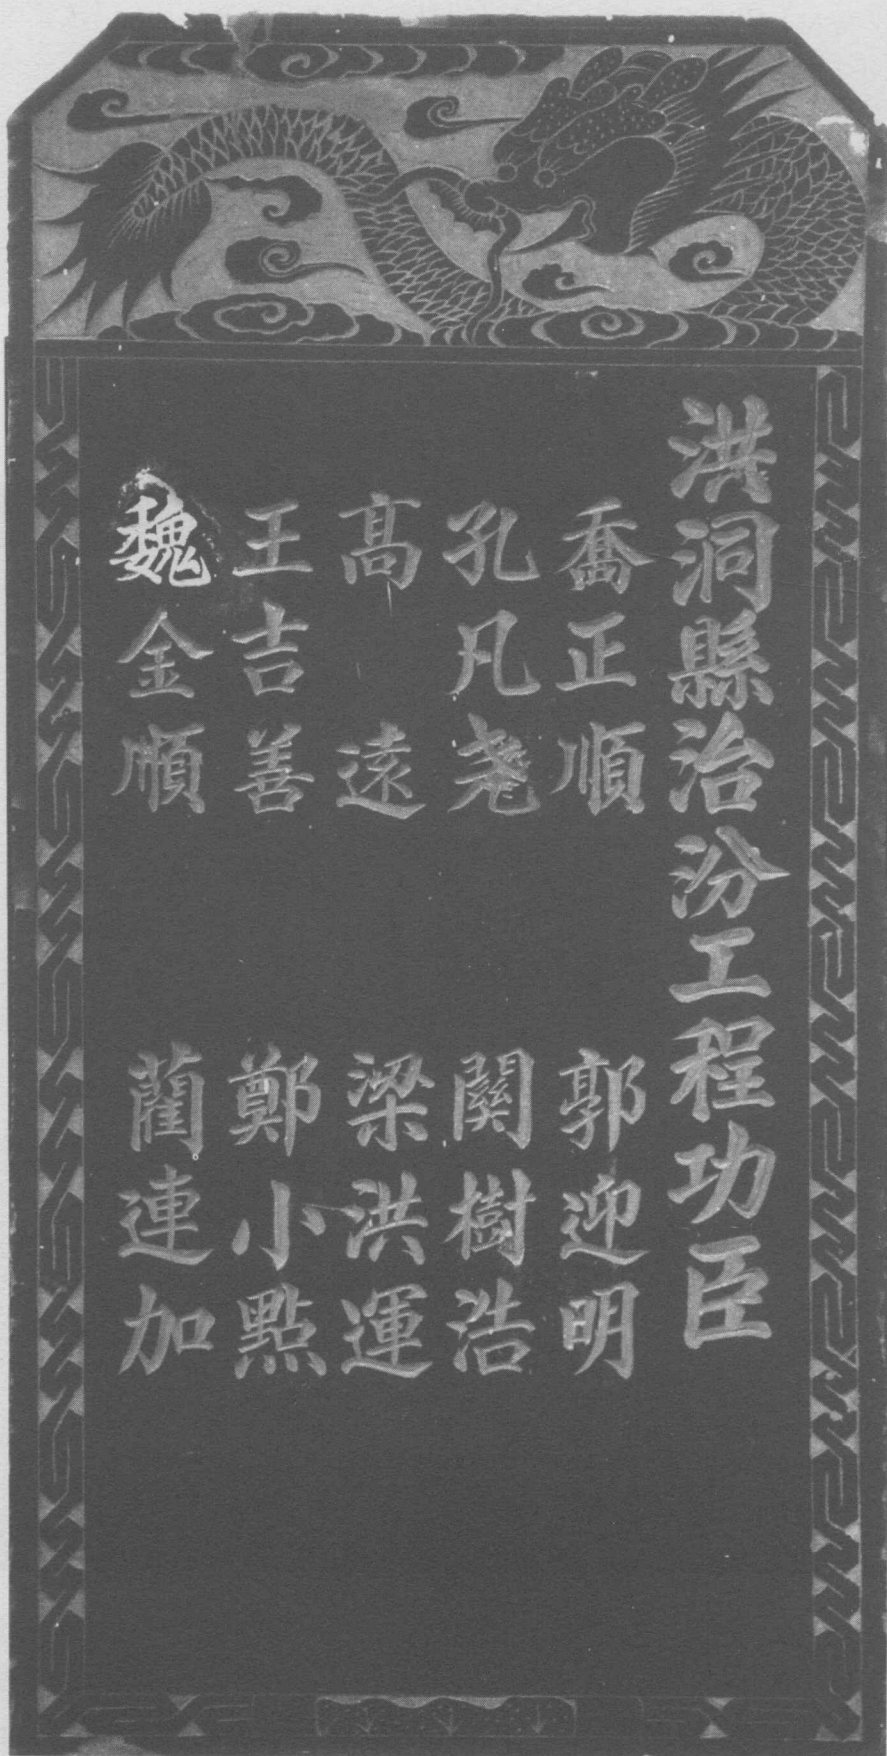 洪洞縣治汾工程功臣
喬正順 郭迎明
孔凡尧 関樹浩
髙遠 梁洪運
王吉善 鄭小點
魏金順 藺連加